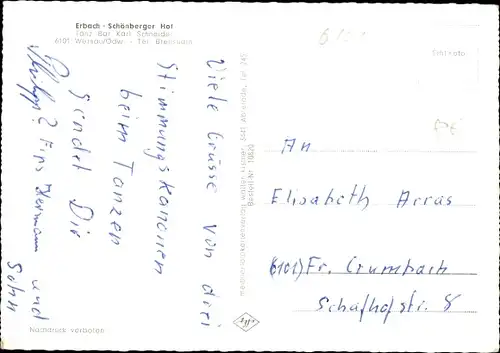 Erbach - Schönberger Hof
Tanz Bar Karl Schneider
6101 Wersau/Odw. - Tel. Brensbach
Viele Grüsse von drei
Stimmungskanonen
beim Tanzen
sendet Die
Philipp? Fips Hermann und
Sohn
Nachdruck verboten
Bestell-Nr.
An
Elisabeth Arras
(6101) Fr. Crumbach
Schafhofstr. 8